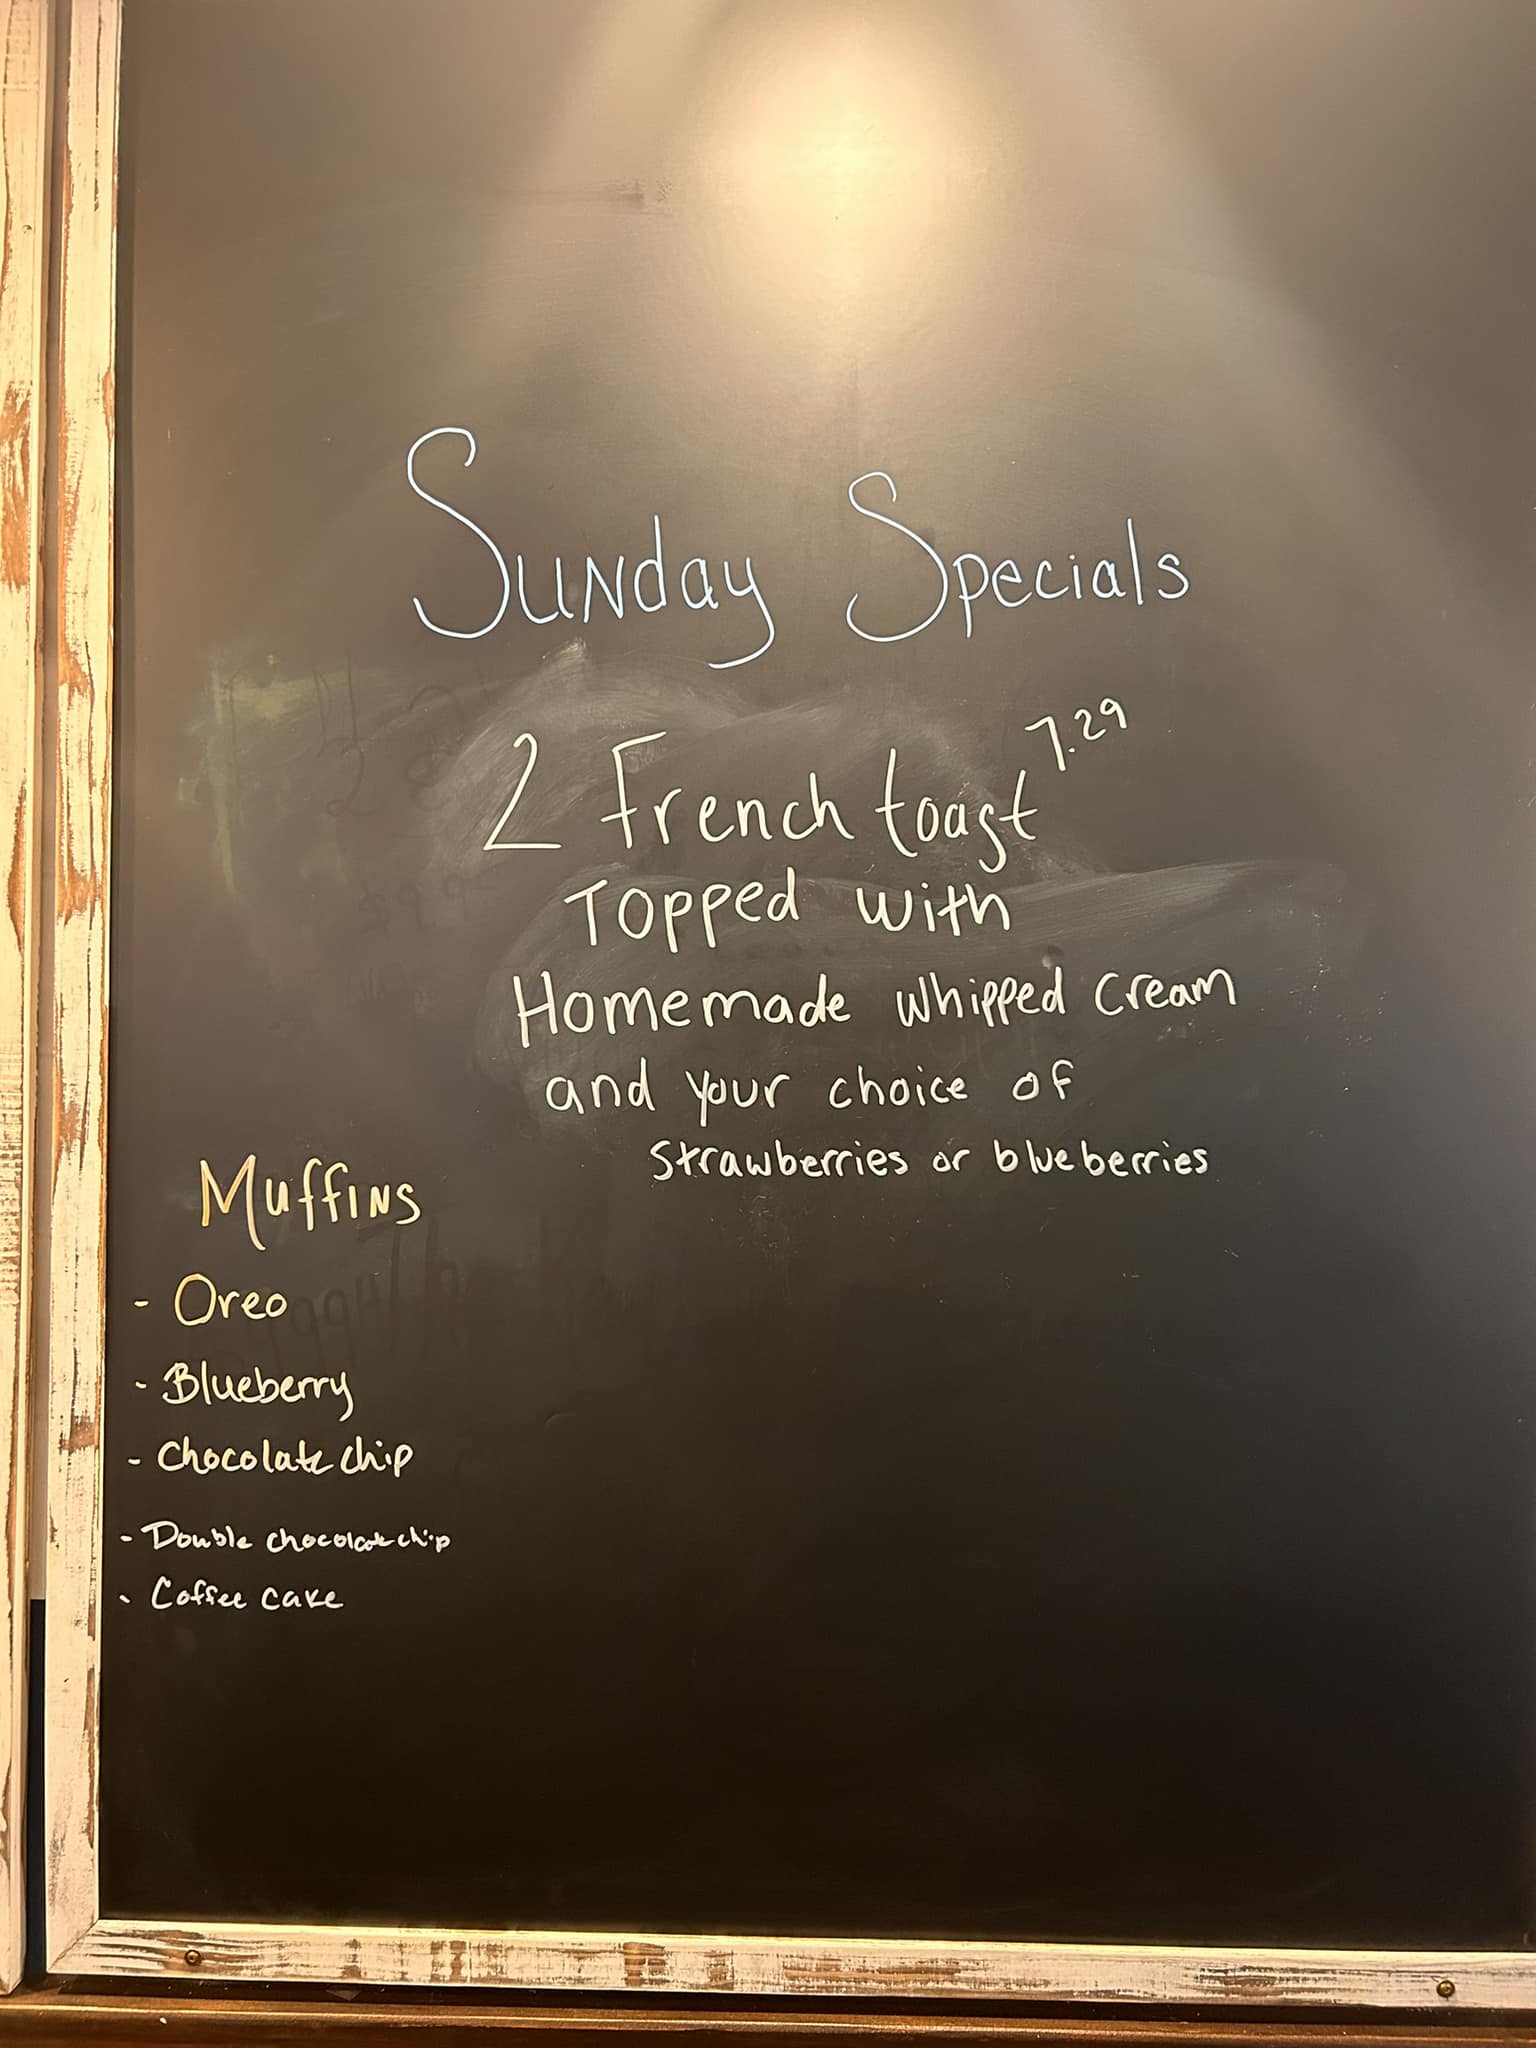 Sunday Specials
2 French toast 7.29
Topped with
Homemade whipped cream
and your choice of
strawberries or blueberries
Muffins
- Oreo
- Blueberry
- Chocolate chip
- Double chocolate chip
- Coffee cake